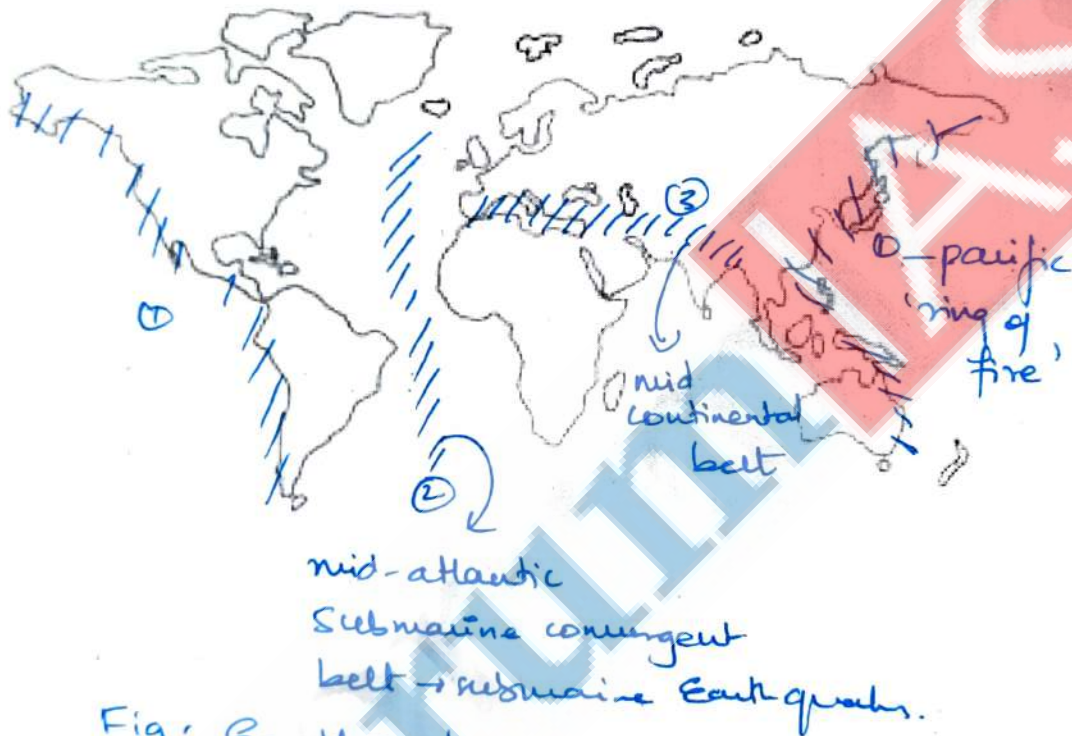 ①
③
① – pacific
'ring of
fire'
mid
continental
belt
②
mid-atlantic
Submarine convergent
belt → submaine Earthquakes.
Fig:
rum IAS